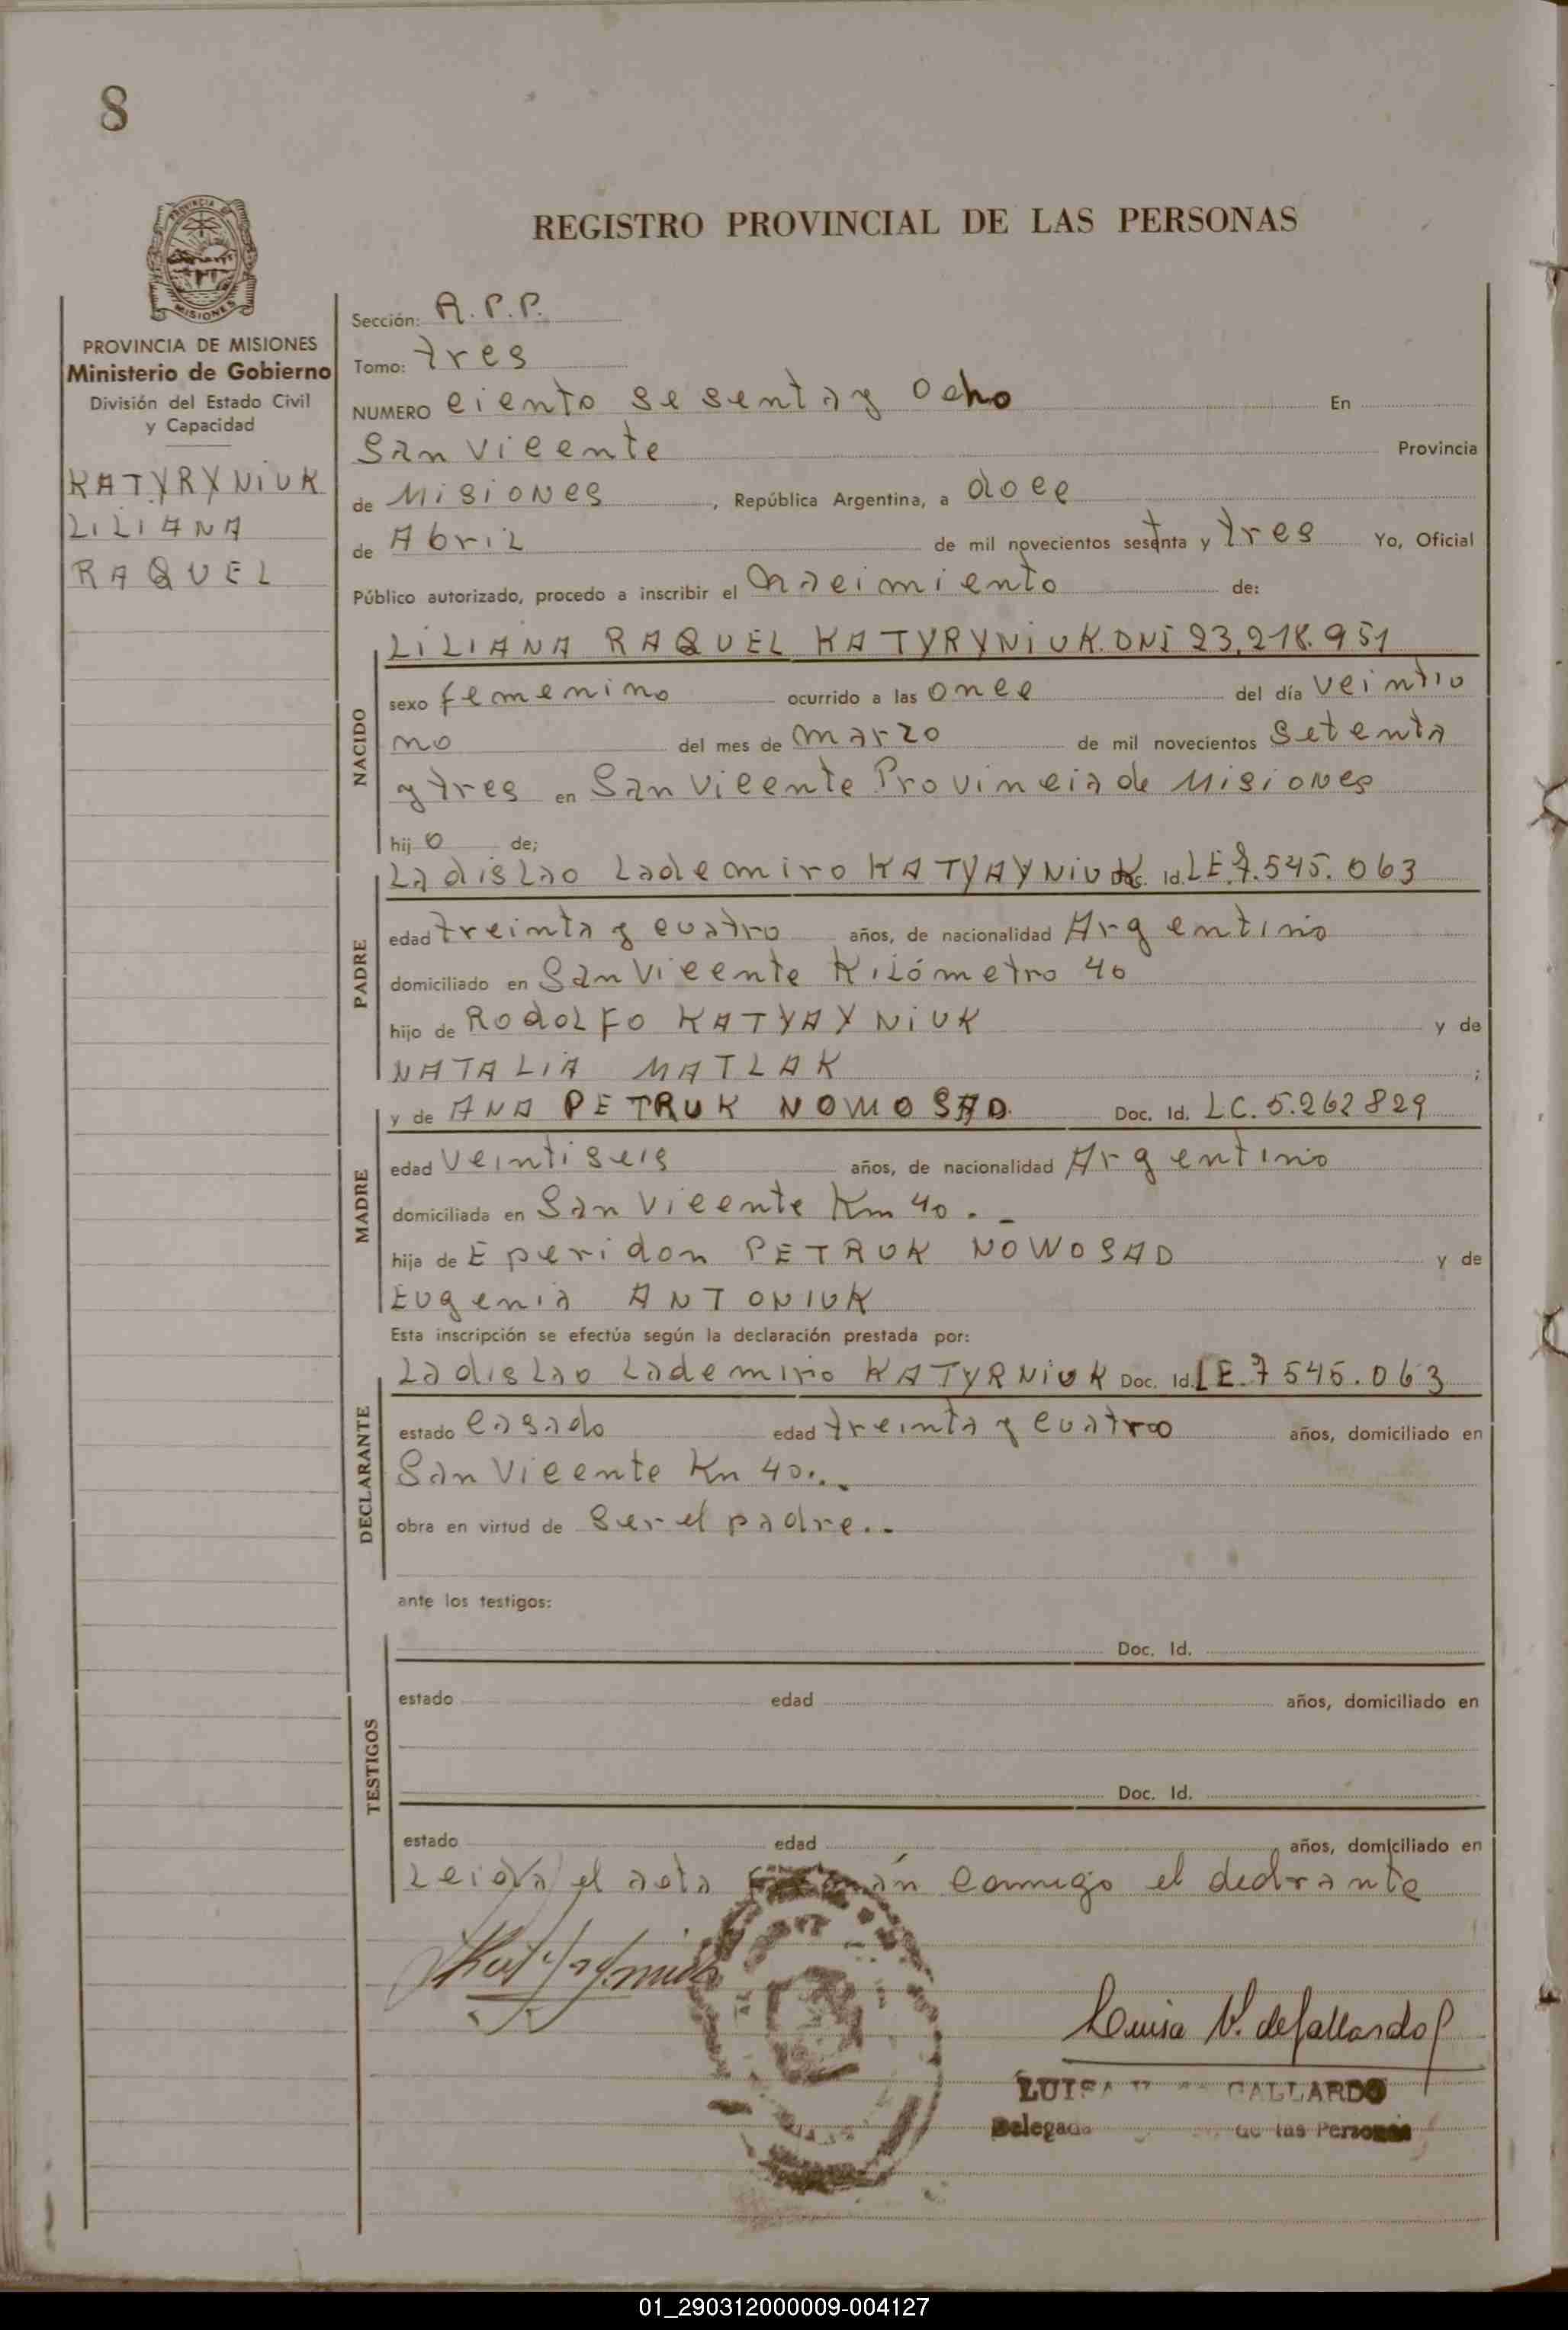 8
REGISTRO PROVINCIAL DE LAS PERSONAS
PROVINCIA DE
MISIONES
PROVINCIA DE MISIONES
Ministerio de Gobierno
División del Estado Civil
y Capacidad
KATYRYNIUK
LILIANA
RAQUEL
Sección: A.P.P.
Tomo: tres
NUMERO ciento sesenta y ocho En
San Vicente Provincia
de Misiones, República Argentina, a doce
de Abril de mil novecientos sesenta y tres Yo, Oficial
Público autorizado, procedo a inscribir el nacimiento de:
NACIDO
LILIANA RAQUEL KATYRYNIUK. DNI 23.218.951
sexo femenino ocurrido a las once del día veintiu
no del mes de marzo de mil novecientos setenta
y tres en San Vicente Provincia de Misiones
hijo de;
PADRE
Ladislao Lademiro KATYAYNIUK Doc. Id. LE.7.545.063
edad treinta y cuatro años, de nacionalidad Argentino
domiciliado en San Vicente Kilómetro 40
hijo de Rodolfo KATYAYNIUK y de
NATALIA MATLAK ;
MADRE
y de ANA PETRUK NOWOSAD. Doc. Id. LC. 5.262829
edad veintiseis años, de nacionalidad Argentino
domiciliada en San Vicente Km 40. -
hija de Eperidon PETRUK NOWOSAD y de
Eugenia ANTONIUK
Esta inscripción se efectúa según la declaración prestada por:
DECLARANTE
Ladislao Lademiro KATYRNIUK Doc. Id. LE.7545.063
estado casado edad treinta y cuatro años, domiciliado en
San Vicente Km 40..
obra en virtud de ser el padre..
ante los testigos:
TESTIGOS
Doc. Id.
estado edad años, domiciliado en
Doc. Id.
estado edad años, domiciliado en
Leida el acta conmigo el declrante
Luisa V. de Gallardo
LUISA GALLARDO
Delegada de las Personas
01_290312000009-004127